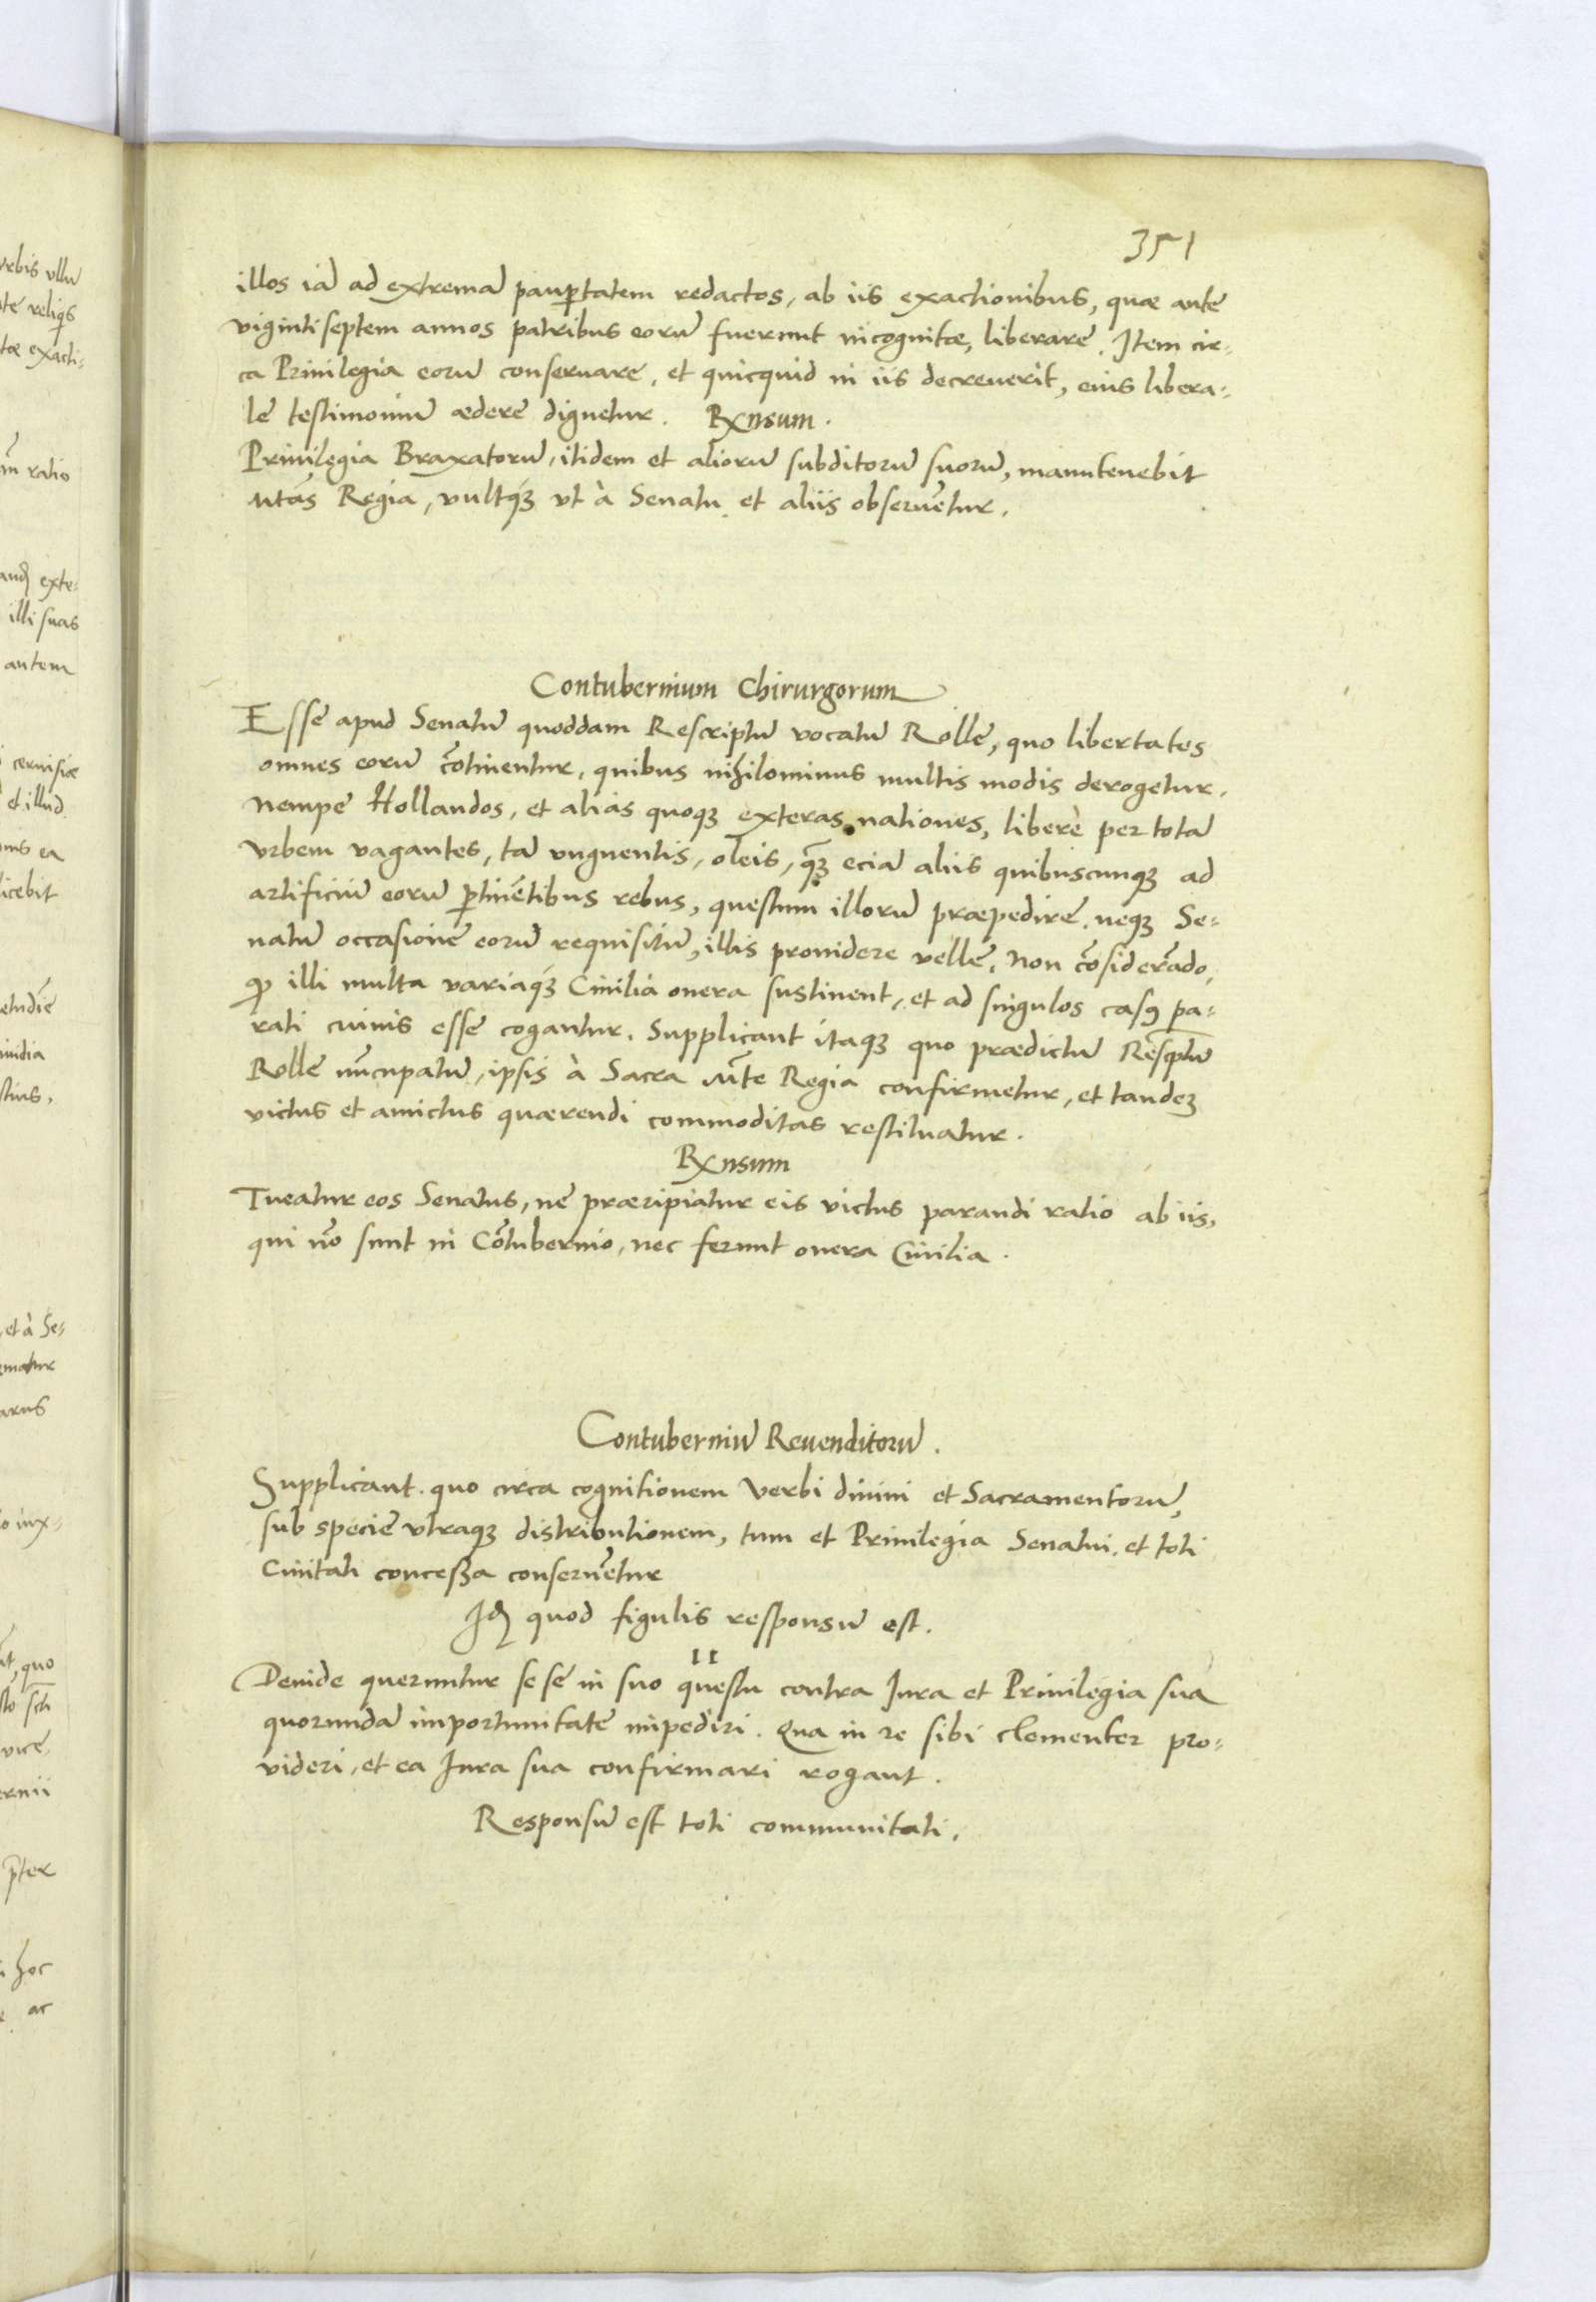 351
illos iā ad extremā paup̱tatem redactos, ab iis exactionibus, quæ ante
viginti septem annos patribus eorū fuerunt incognitæ, liberare. Item cir-
ca Priuilegia eorū conseruare, et quicquid in iis decreuerit, eius libera-
le testimoniū ædere dignetur. Rxnsum.
Priuilegia Braxatorū, itidem et aliorū subditorū suorū, manutenebit
Mtás Regia, vultq́ꝫ vt à Senatu et aliis obseruētur.
Contubernium Chirurgorum
Esse apud Senatū quoddam Rescriptū vocatū Rolle, quo libertates
omnes eorū cōtinentur, quibus nihilominus multis modis derogetur.
Nempe Hollandos, et alias quoqꝫ exteras nationes, liberè per totā
vrbem vagantes, tā vnguentis, oleis, q̄ꝫ eciā aliis quibuscunqꝫ ad
artificiū eorū ꝑtinētibus rebus, questum illorū præpedire, neqꝫ Se-
natū occasione eorū requisitū, illis prouidere velle. Non cōsiderādo,
ꝙ illi multa variaq́ꝫ Ciuilia onera sustinent, et ad singulos casꝰ pa-
rati cuiuis esse cogantur. Supplicant itaqꝫ quo prædictū Resc̄ptū
Rolle nūcupatū, ipsis à Sacra Mt̄e Regia confirmetur, et tandeꝫ
victus et amictus quærendi commoditas restituatur.
Rxnsum
Tueatur eos Senatus, ne præripiatur eis victus parandi ratio ab iis,
qui nō sunt in Cōtubernio, nec ferunt onera Ciuilia.
Contuberniū Reuenditorū.
Supplicant quo circa cognitionem Verbi diuini et Sacramentorū,
sub specie vtraqꝫ distributionem, tum et Priuilegia Senatui et toti
Ciuitati concessa conseruētur
Idꝫ quod figulis responsū est.
II
Deinde queruntur sese in suo questu contra Jura et Priuilegia sua
quorundā importunitate impediri. Qua in re sibi clementer pro-
videri, et ea Jura sua confirmari rogant.
Responsū est toti communitati.